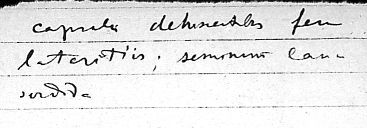 capsula dehiscentes fere
lateritiis; seminum lana
sordida